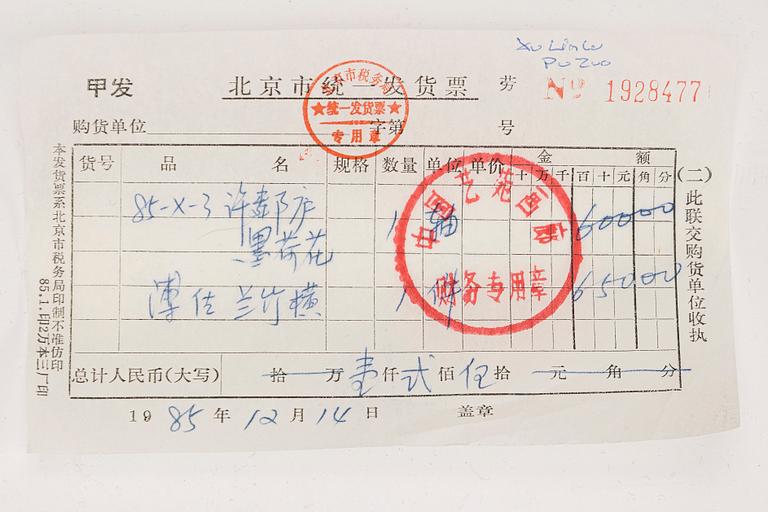 Xu Lin Lu
Pu Zuo
甲发
北京市统一发货票
劳
No 1928477
北京市税务局
★统一发货票★
专用章
购货单位 字第 号
货号 品名 规格 数量 单位 单价 金额
十万千百十元角分
85-X-3 许麐庐 1 轴 60000
墨荷花
溥佐 兰竹横 1 件 65000
艺苑
财务专用章
总计人民币(大写) 拾 万 壹仟 贰佰 伍拾 元 角 分
1985年12月14日 盖章
(二)此联交购货单位收执
本发货票系北京市税务局印制不准仿印
85.1.印2万本三厂印